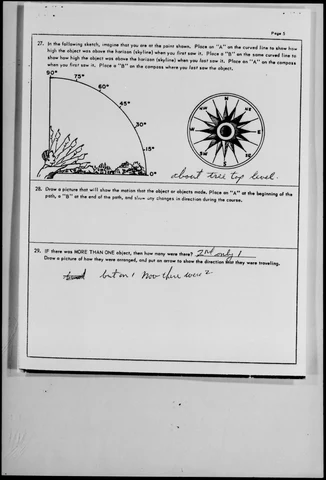 Page 5
27. In the following sketch, imagine that you are at the point shown. Place an "A" on the curved line to show how
high the object was above the horizon (skyline) when you first saw it. Place a "B" on the same curved line to
show how high the object was above the horizon (skyline) when you last saw it. Place an "A" on the compass
when you first saw it. Place a "B" on the compass where you last saw the object.
90° 75°
60°
45°
30°
15°
0°
N
NE
E
SE
S
SW
W
NW
about tree top level.
28. Draw a picture that will show the motion that the object or objects made. Place an "A" at the beginning of the
path, a "B" at the end of the path, and show any changes in direction during the course.
29. IF there was MORE THAN ONE object, then how many were there? 2nd only 1
Draw a picture of how they were arranged, and put an arrow to show the direction that they were traveling.
but on 1 Nov there were 2